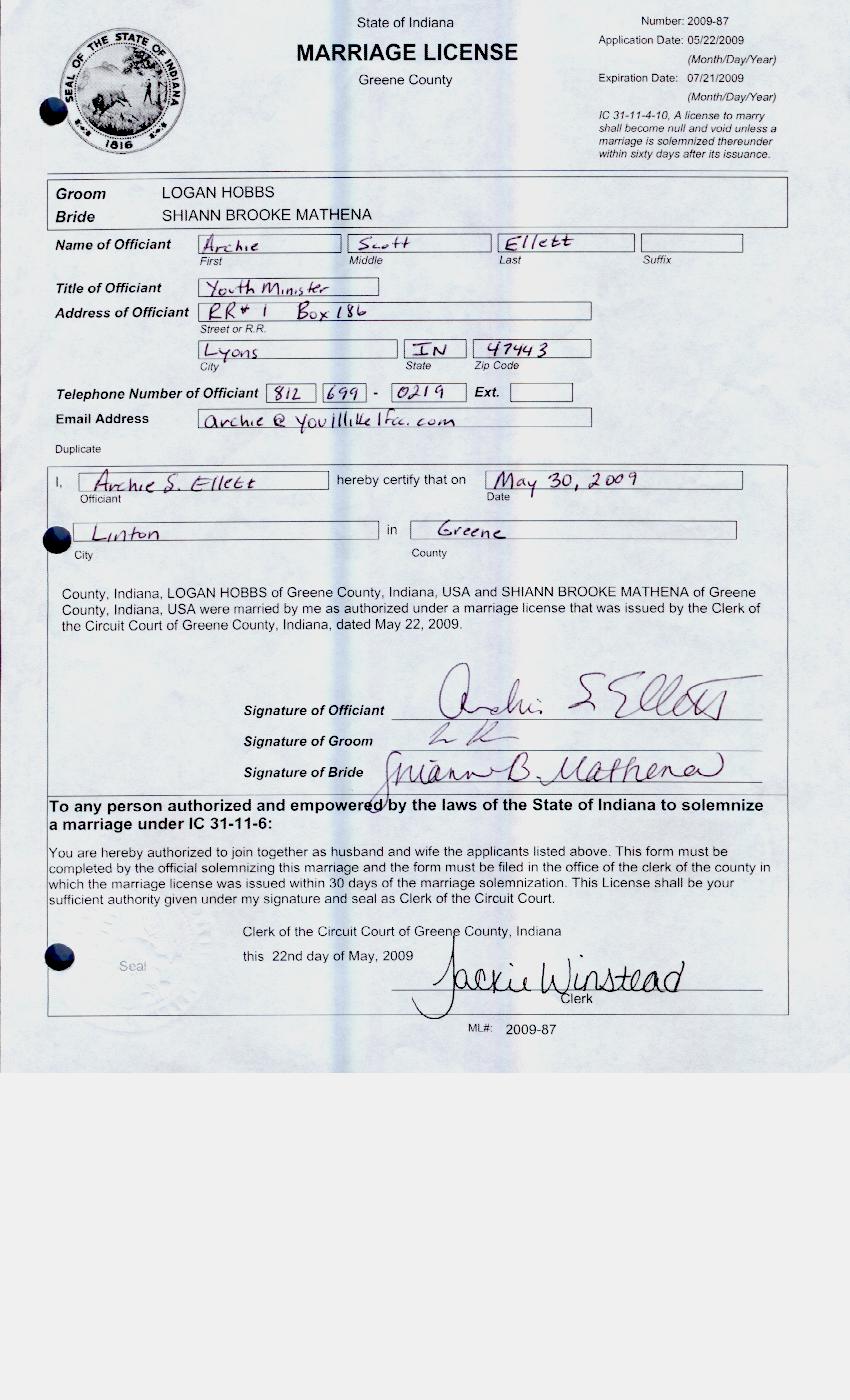 State of Indiana
MARRIAGE LICENSE
Greene County
Number: 2009-87
Application Date: 05/22/2009
(Month/Day/Year)
Expiration Date: 07/21/2009
(Month/Day/Year)
IC 31-11-4-10, A license to marry
shall become null and void unless a
marriage is solemnized thereunder
within sixty days after its issuance.
SEAL OF THE STATE OF INDIANA
1816
Groom LOGAN HOBBS
Bride SHIANN BROOKE MATHENA
Name of Officiant Archie Scott Ellett
First Middle Last Suffix
Title of Officiant Youth Minister
Address of Officiant RR# 1 Box 186
Street or R.R.
Lyons IN 47443
City State Zip Code
Telephone Number of Officiant 812 699 - 0219 Ext.
Email Address archie@youlllikelfcc.com
Duplicate
I, Archie S. Ellett hereby certify that on May 30, 2009
Officiant Date
Linton in Greene
City County
County, Indiana, LOGAN HOBBS of Greene County, Indiana, USA and SHIANN BROOKE MATHENA of Greene
County, Indiana, USA were married by me as authorized under a marriage license that was issued by the Clerk of
the Circuit Court of Greene County, Indiana, dated May 22, 2009.
Signature of Officiant Archie S Ellett
Signature of Groom
Signature of Bride Shiann B. Mathena
To any person authorized and empowered by the laws of the State of Indiana to solemnize
a marriage under IC 31-11-6:
You are hereby authorized to join together as husband and wife the applicants listed above. This form must be
completed by the official solemnizing this marriage and the form must be filed in the office of the clerk of the county in
which the marriage license was issued within 30 days of the marriage solemnization. This License shall be your
sufficient authority given under my signature and seal as Clerk of the Circuit Court.
Clerk of the Circuit Court of Greene County, Indiana
this 22nd day of May, 2009
Seal
Jackie Winstead
Clerk
ML#: 2009-87